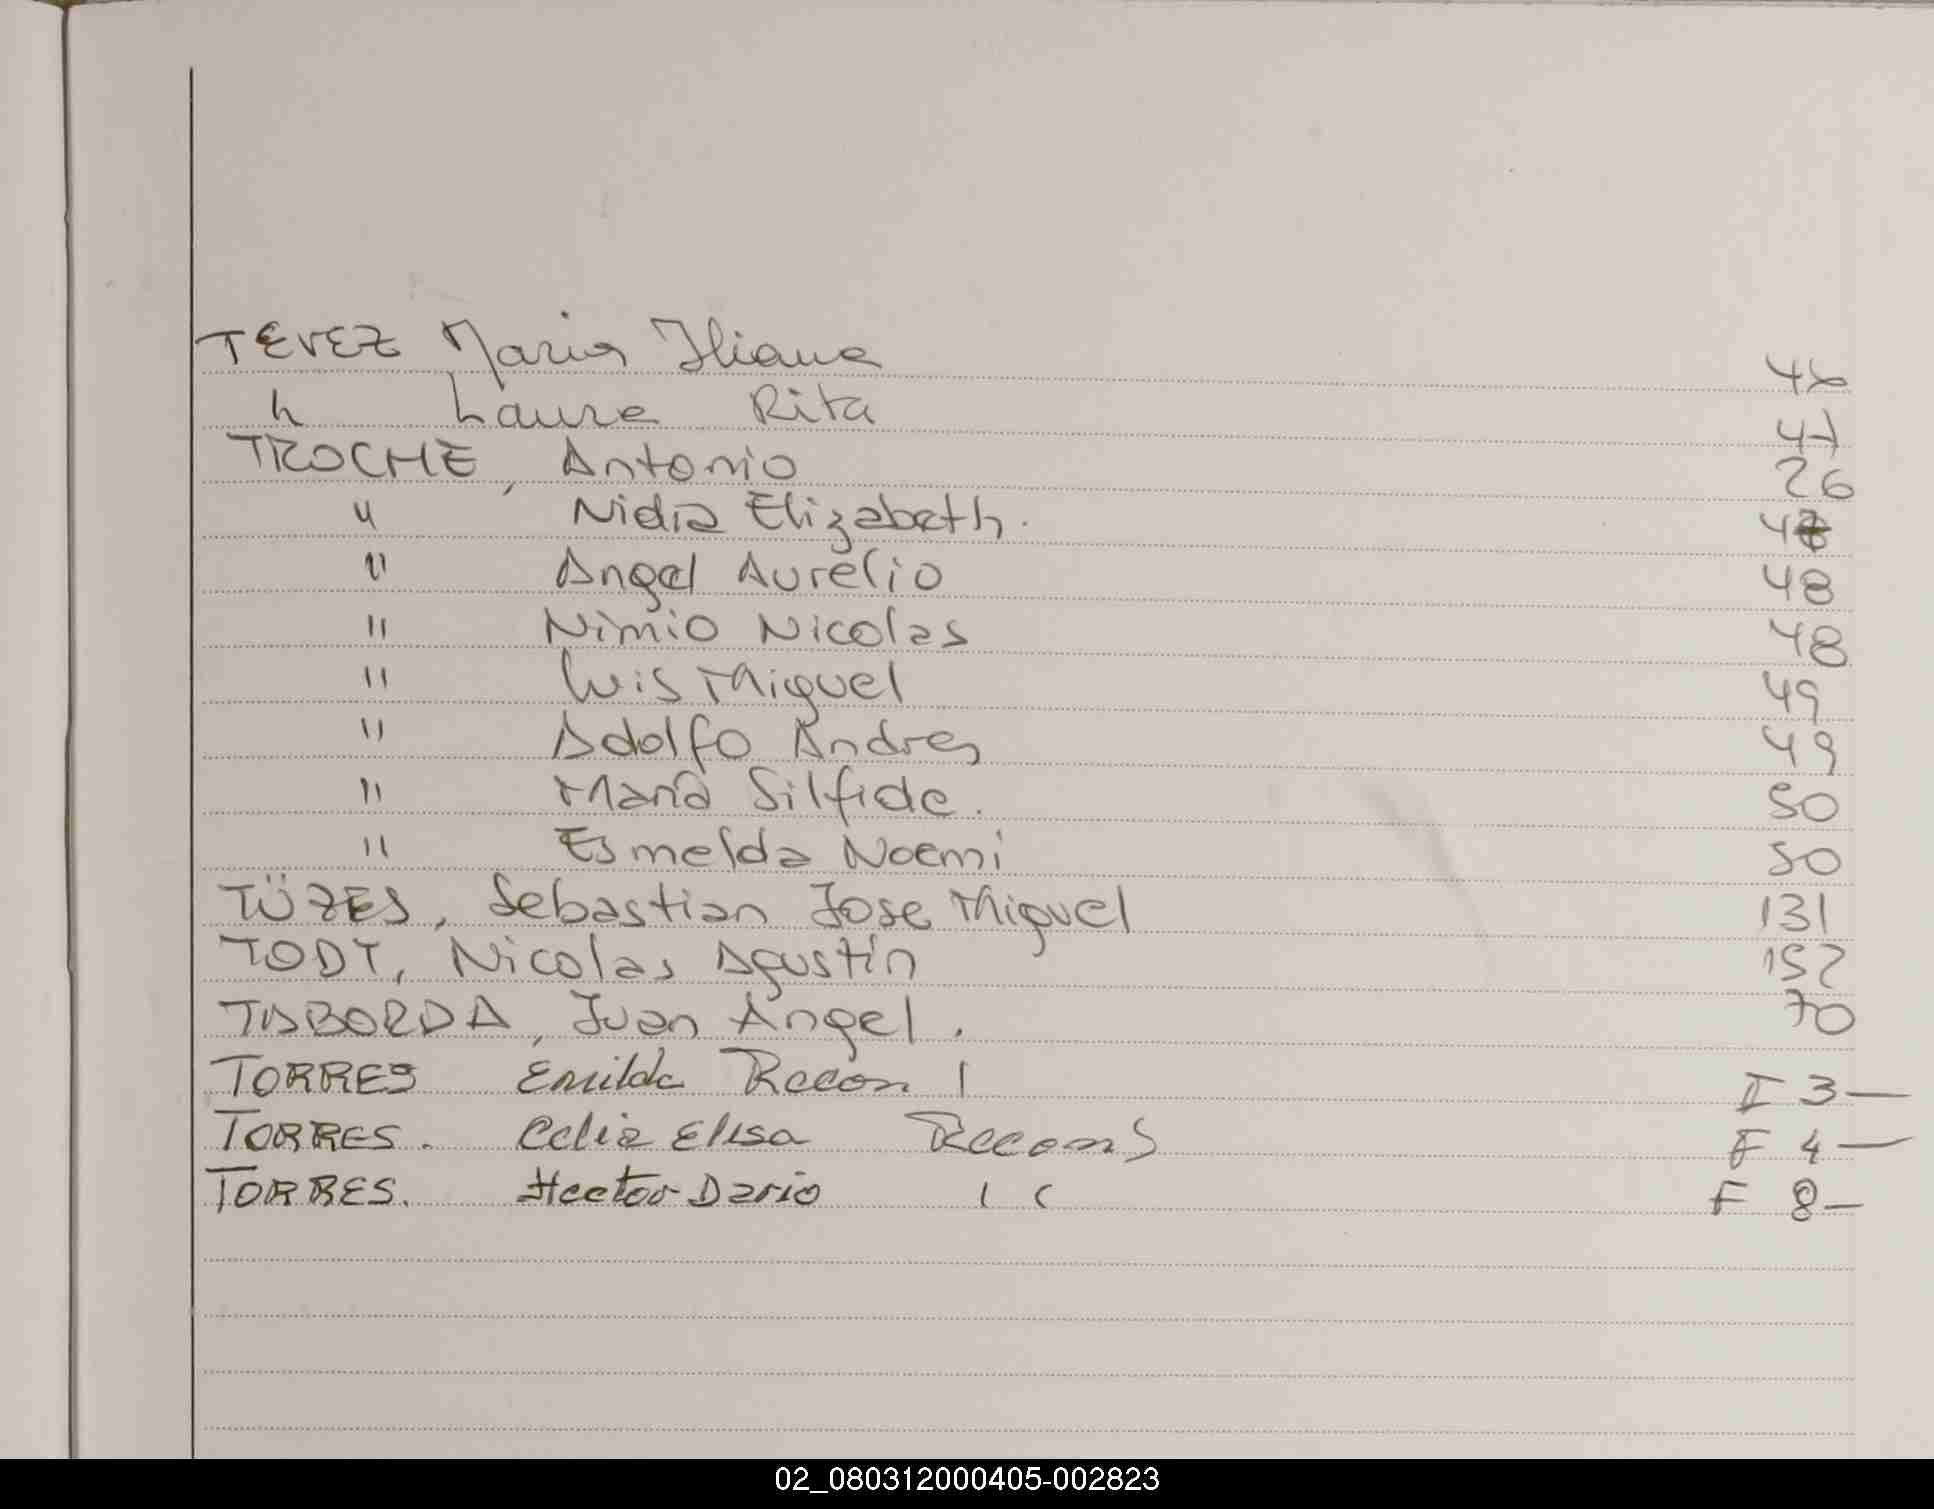 TEVEZ Maria Iliana 46
" Laura Rita 47
TROCHE, Antonio 26
" Nidia Elizabeth. 48
" Angel Aurelio 48
" Nimio Nicolas 48
" Luis Miguel 49
" Adolfo Andres 49
" María Silfide. 50
" Esmelda Noemi 50
TÜZES, Sebastian Jose Miguel 131
TODT, Nicolas Agustín 152
TABORDA, Juan Angel. 70
TORRES Emilda Recon I 3—
TORRES. Celia Elisa Recons F 4—
TORRES. Hector Dario F 8—
02_080312000405-002823